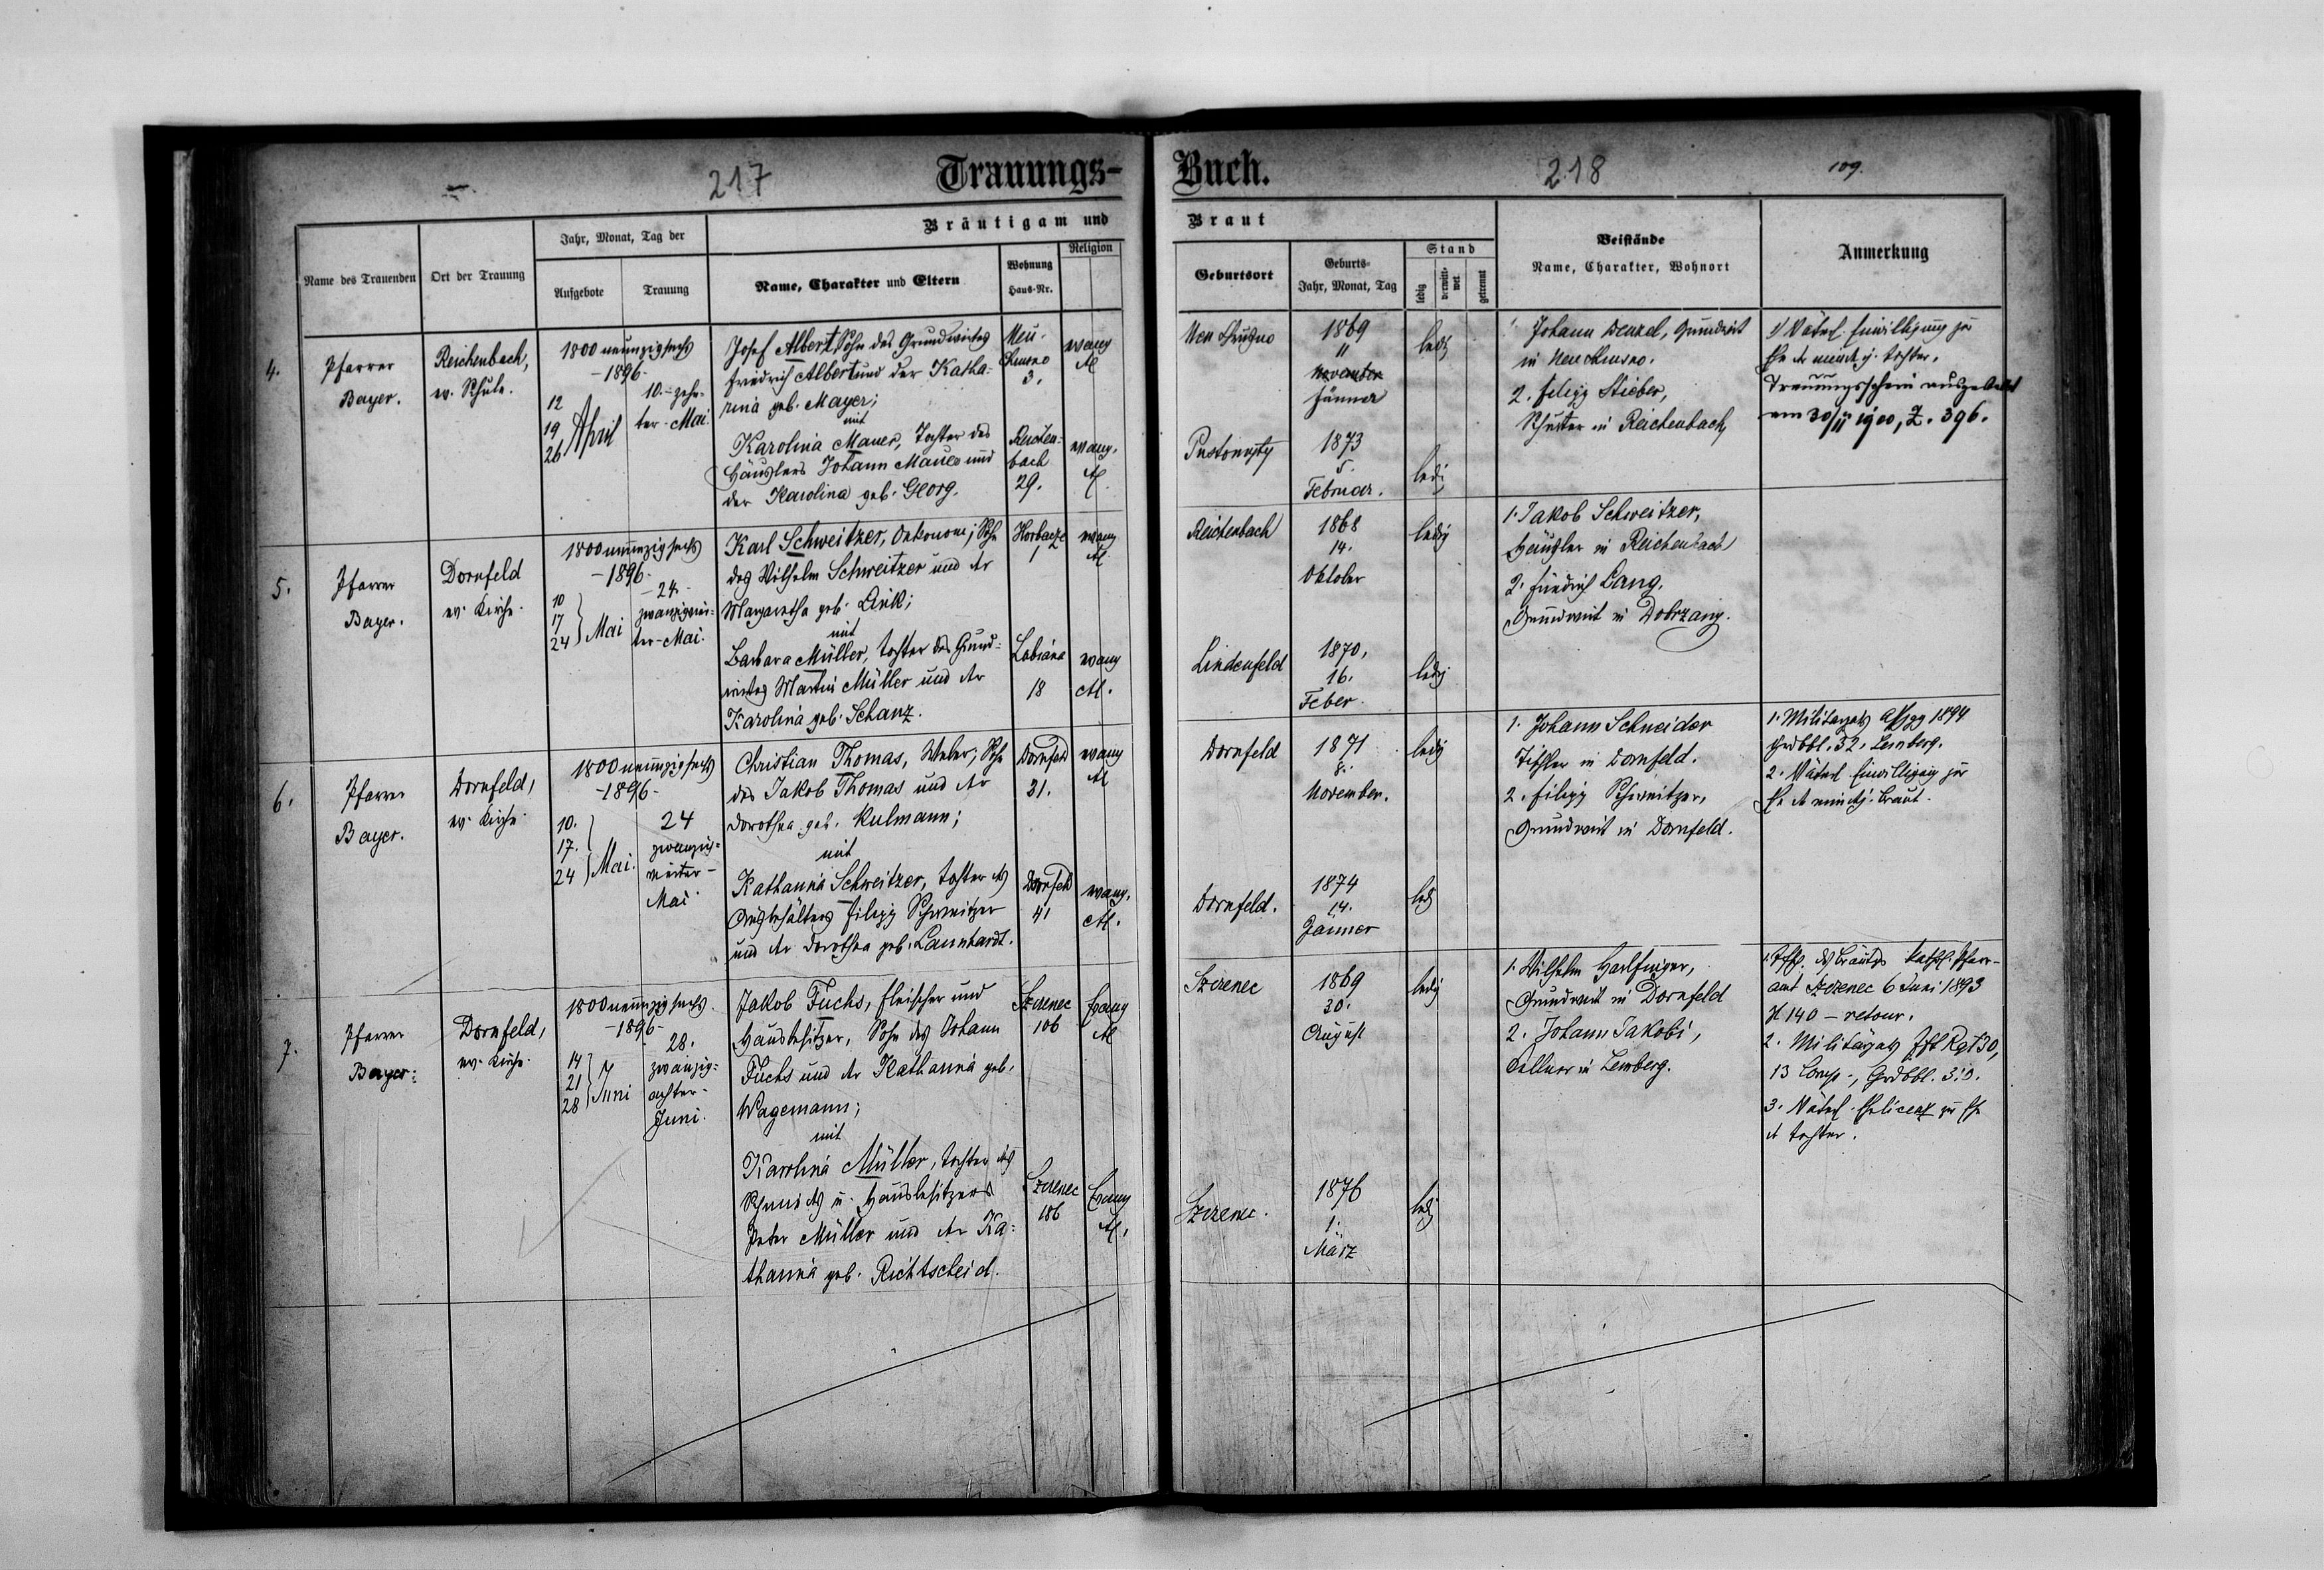 217
Trauungs-
Buch.
218
109.
Bräutigam und
Braut
Name des Trauenden
Ort der Trauung
Jahr, Monat, Tag der
Aufgebote
Trauung
Name, Charakter und Eltern
Wohnung
Haus-Nr.
Religion
Geburtsort
Geburts-
Jahr, Monat, Tag
Stand
ledig
verwitt-
wet
getrennt
Beistände
Name, Charakter, Wohnort
Anmerkung
4.
Pfarrer
Bayer.
Reichenbach,
ev. Schule.
1800 neunzigsechs
-1896-
12
19
26
April
10.-zehn-
ter-Mai.
Josef Albert, Sohn des Grundwirtes
Friedrich Albert und der Katha-
rina geb. Mayer;
mit
Karolina Mauer, Tochter des
Häuslers Johann Mauer und
der Karolina geb. Georg.
Neu-
Chrusno
3.
evang
AC
Reichen-
bach
29.
evang.
AC.
Neu Chrusno
1869
11
November
Jänner
ledig
Pustomyty
1873
5.
Februar.
ledig
1. Johann Wenzel, Grundwirt
in Neu Chrusno.
2. Filipp Stieber,
Schuster in Reichenbach
1) Väterl. Einwilligung zur
Ehe der mindj. Tochter.
Trauungsschein ausgestellt
am 30/11 1900, Z. 396.
5.
Pfarrer
Bayer.
Dornfeld
ev. Kirche.
1800 neunzigsechs
-1896-
10
17
24
Mai
-24.-
zwanzigvier-
ter-Mai.
Karl Schweitzer, Oekonom; Sohn
des Wilhelm Schweitzer und der
Margaretha geb. Link;
mit
Barbara Müller, Tochter des Grund-
wirtes Martin Müller und der
Karolina geb. Schanz.
Horbacze
1
evang
AC.
Lubiana
18
evang
AC.
Reichenbach
1868
14.
Oktober
ledig
Lindenfeld
1870.
16.
Feber.
ledig
1. Jakob Schweitzer,
Häusler in Reichenbach
2. Friedrich Lang,
Grundwirt in Dobrzany.
6.
Pfarrer
Bayer.
Dornfeld,
ev. Kirche
1800 neunzigsechs
-1896-
10.
17.
24
Mai.
24
zwanzig-
vierter-
Mai.
Christian Thomas, Weber; Sohn
des Jakob Thomas und der
Dorothea geb. Kulmann;
mit
Katharina Schweitzer, Tochter des
Ausbehälters Filipp Schweitzer
und der Dorothea geb. Lannhardt.
Dornfeld
31.
evang
AC
Dornfeld
41
evang.
AC.
Dornfeld
1871
8.
November.
ledig
Dornfeld.
1874
14.
Jänner
ledig
1. Johann Schneider
Tischler in Dornfeld.
2. Filipp Schweitzer,
Grundwirt in Dornfeld.
1. Militärpass 1894
Grdbbl. 52. Lemberg.
2. Väterl. Einwilligung zur
Ehe der mindj. Braut.
7.
Pfarrer
Bayer.
Dornfeld,
ev. Kirche.
1800 neunzigsechs.
-1896-
14
21
28
Juni
28.
zwanzig-
achter-
Juni.
Jakob Fuchs, Fleischer und
Hausbesitzer, Sohn des Johann
Fuchs und der Katharina geb.
Wagemann;
mit
Karolina Müller, Tochter des
Schmieds u. Hausbesitzers
Peter Müller und der Ka-
tharina geb. Richtscheid.
Szczerzec
106
Evang
AC
Szczerzec
186
Evang
AC.
Szczerzec
1869
30.
August
ledig
Szczerzec.
1876
1.
März
ledig
1. Wilhelm Harlfinger,
Grundwirt in Dornfeld
2. Johann Jakobi,
Kellner in Lemberg.
des Bräutgs kathol. Pfarr-
amt Szczerzec 6 Juni 1893
N 140 - retour.
2. Militärpass Rgt 30,
13 Comp., Grdbbl.
3. Väterl. zur Ehe
der Tochter.